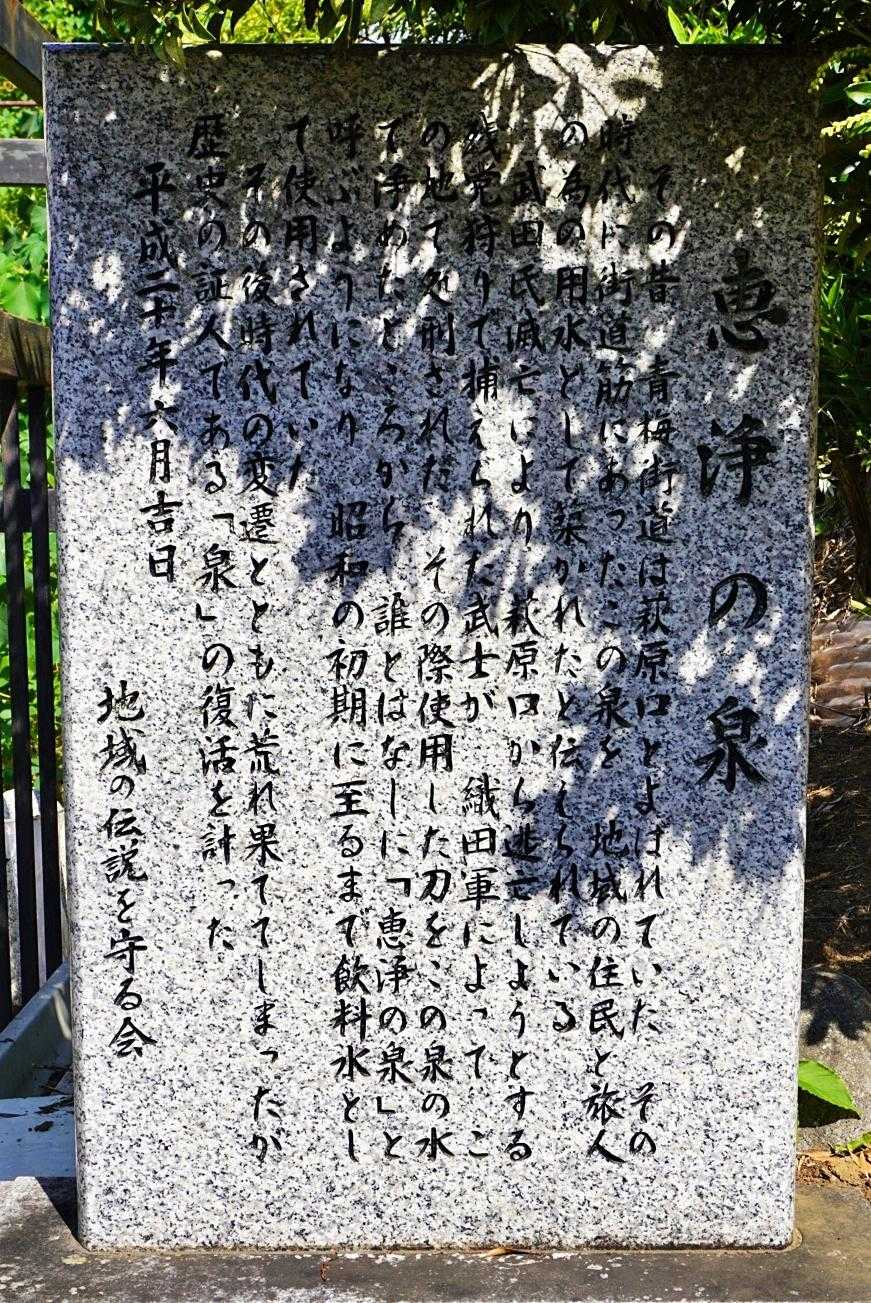 恵浄の泉
その昔 青梅街道は萩原口とよばれていた その
時代に街道筋にあったこの泉を 地域の住民と旅人
の為の用水として築かれたと伝えられている
武田氏滅亡により 萩原口から逃亡しようとする
残党狩りで捕えられた武士が 織田軍によって こ
の地で処刑された その際使用した刀をこの泉の水
で浄めたところから 誰とはなしに「恵浄の泉」と
呼ぶようになり 昭和の初期に至るまで飲料水とし
て使用されていた
その後時代の変遷とともに荒れ果ててしまったが
歴史の証人である「泉」の復活を計った
平成二十年六月吉日
地域の伝説を守る会